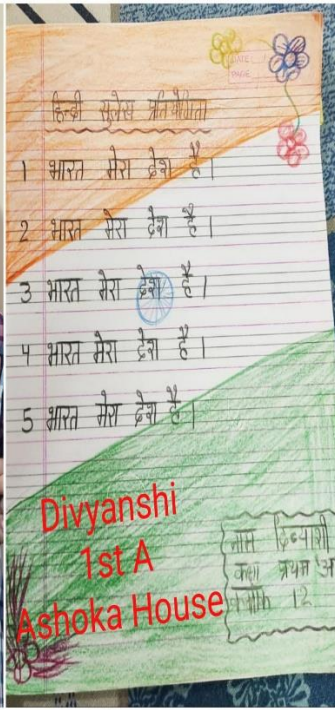 DATE
PAGE
हिन्दी सुलेख प्रतियोगिता
1 भारत मेरा देश है।
2 भारत मेरा देश है।
3 भारत मेरा देश है।
4 भारत मेरा देश है।
5 भारत मेरा देश है।
Divyanshi
1st A
Ashoka House
नाम दिव्यांशी
कक्षा प्रथम 'अ
क्रमांक 12